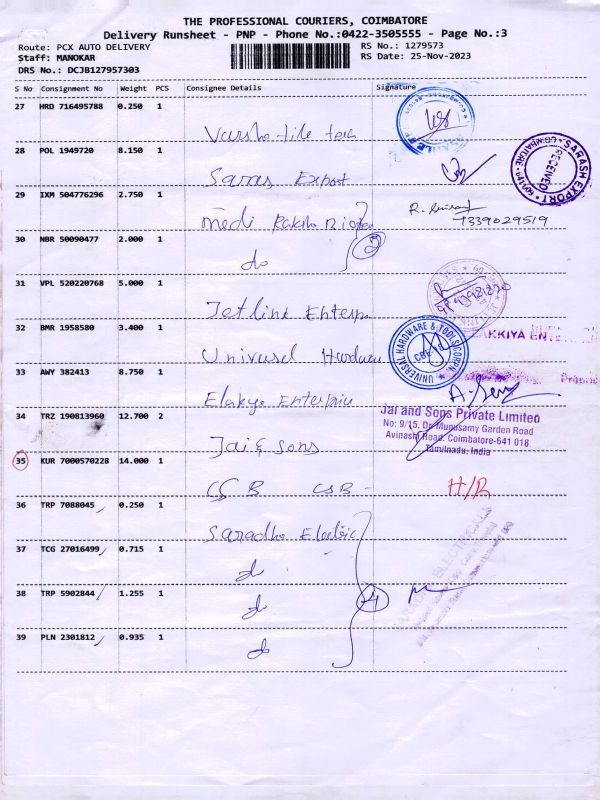 THE PROFESSIONAL COURIERS, COIMBATORE
Delivery Runsheet - PNP - Phone No.:0422-3505555 - Page No.:3
Route: PCX AUTO DELIVERY
RS No.: 1279573
Staff: MANOKAR
RS Date: 25-Nov-2023
DRS No.: DCJB127957303
S No Consignment No Weight PCS Consignee Details Signature
27 HRD 716495788 0.250 1
Varsha tile tech
28 POL 1949720 8.150 1
Saras Export
SARASH EXPORT
RECEIVED
29 IXM 504776296 2.750 1
Medi Raksha
R.
7339029519
30 NBR 50090477 2.000 1
do
2
31 VPL 520220768 5.000 1
Jetlink Enterp
32 BMR 1958580 3.400 1
Universel Hardware
UNIVERSAL HARDWARE & TOOLS CORPN.
33 AWY 382413 8.750 1
Elakya Enterprise
34 TRZ 190813960 12.700 2
Jai & Sons
Jai and Sons Private Limited
No: 9/15, Dr. Munusamy Garden Road
Avinashi Road, Coimbatore-641 018.
Tamilnadu, India
35 KUR 7000570228 14.000 1
CSB CSB -
H/R
36 TRP 7088045 0.250 1
Saradha Electric
37 TCG 27016499 0.715 1
do
38 TRP 5902844 1.255 1
do
4
39 PLN 2301812 0.935 1
do